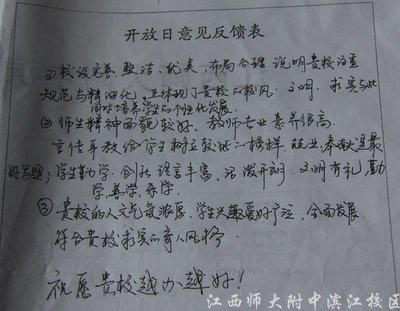 开放日意见反馈表
①校设完善、整洁、优美、布局合理 说明贵校注重
规范与精细化,正体现了贵校的校风:文明、求实与此
同时培养学生的个性化发展。
②师生精神面貌较好,教师专业素养很高.
言传身教给学生树立较好榜样,敬业奉献是最
好写照;学生勤学、创新 语言丰富、活泼开朗、文明有礼,勤
学善学、
③ 贵校的人文气氛浓厚、学生兴趣爱好广泛、全面发展.
符合贵校求实的育人风格.
祝愿贵校越办越好!
江西师大附中滨江校区